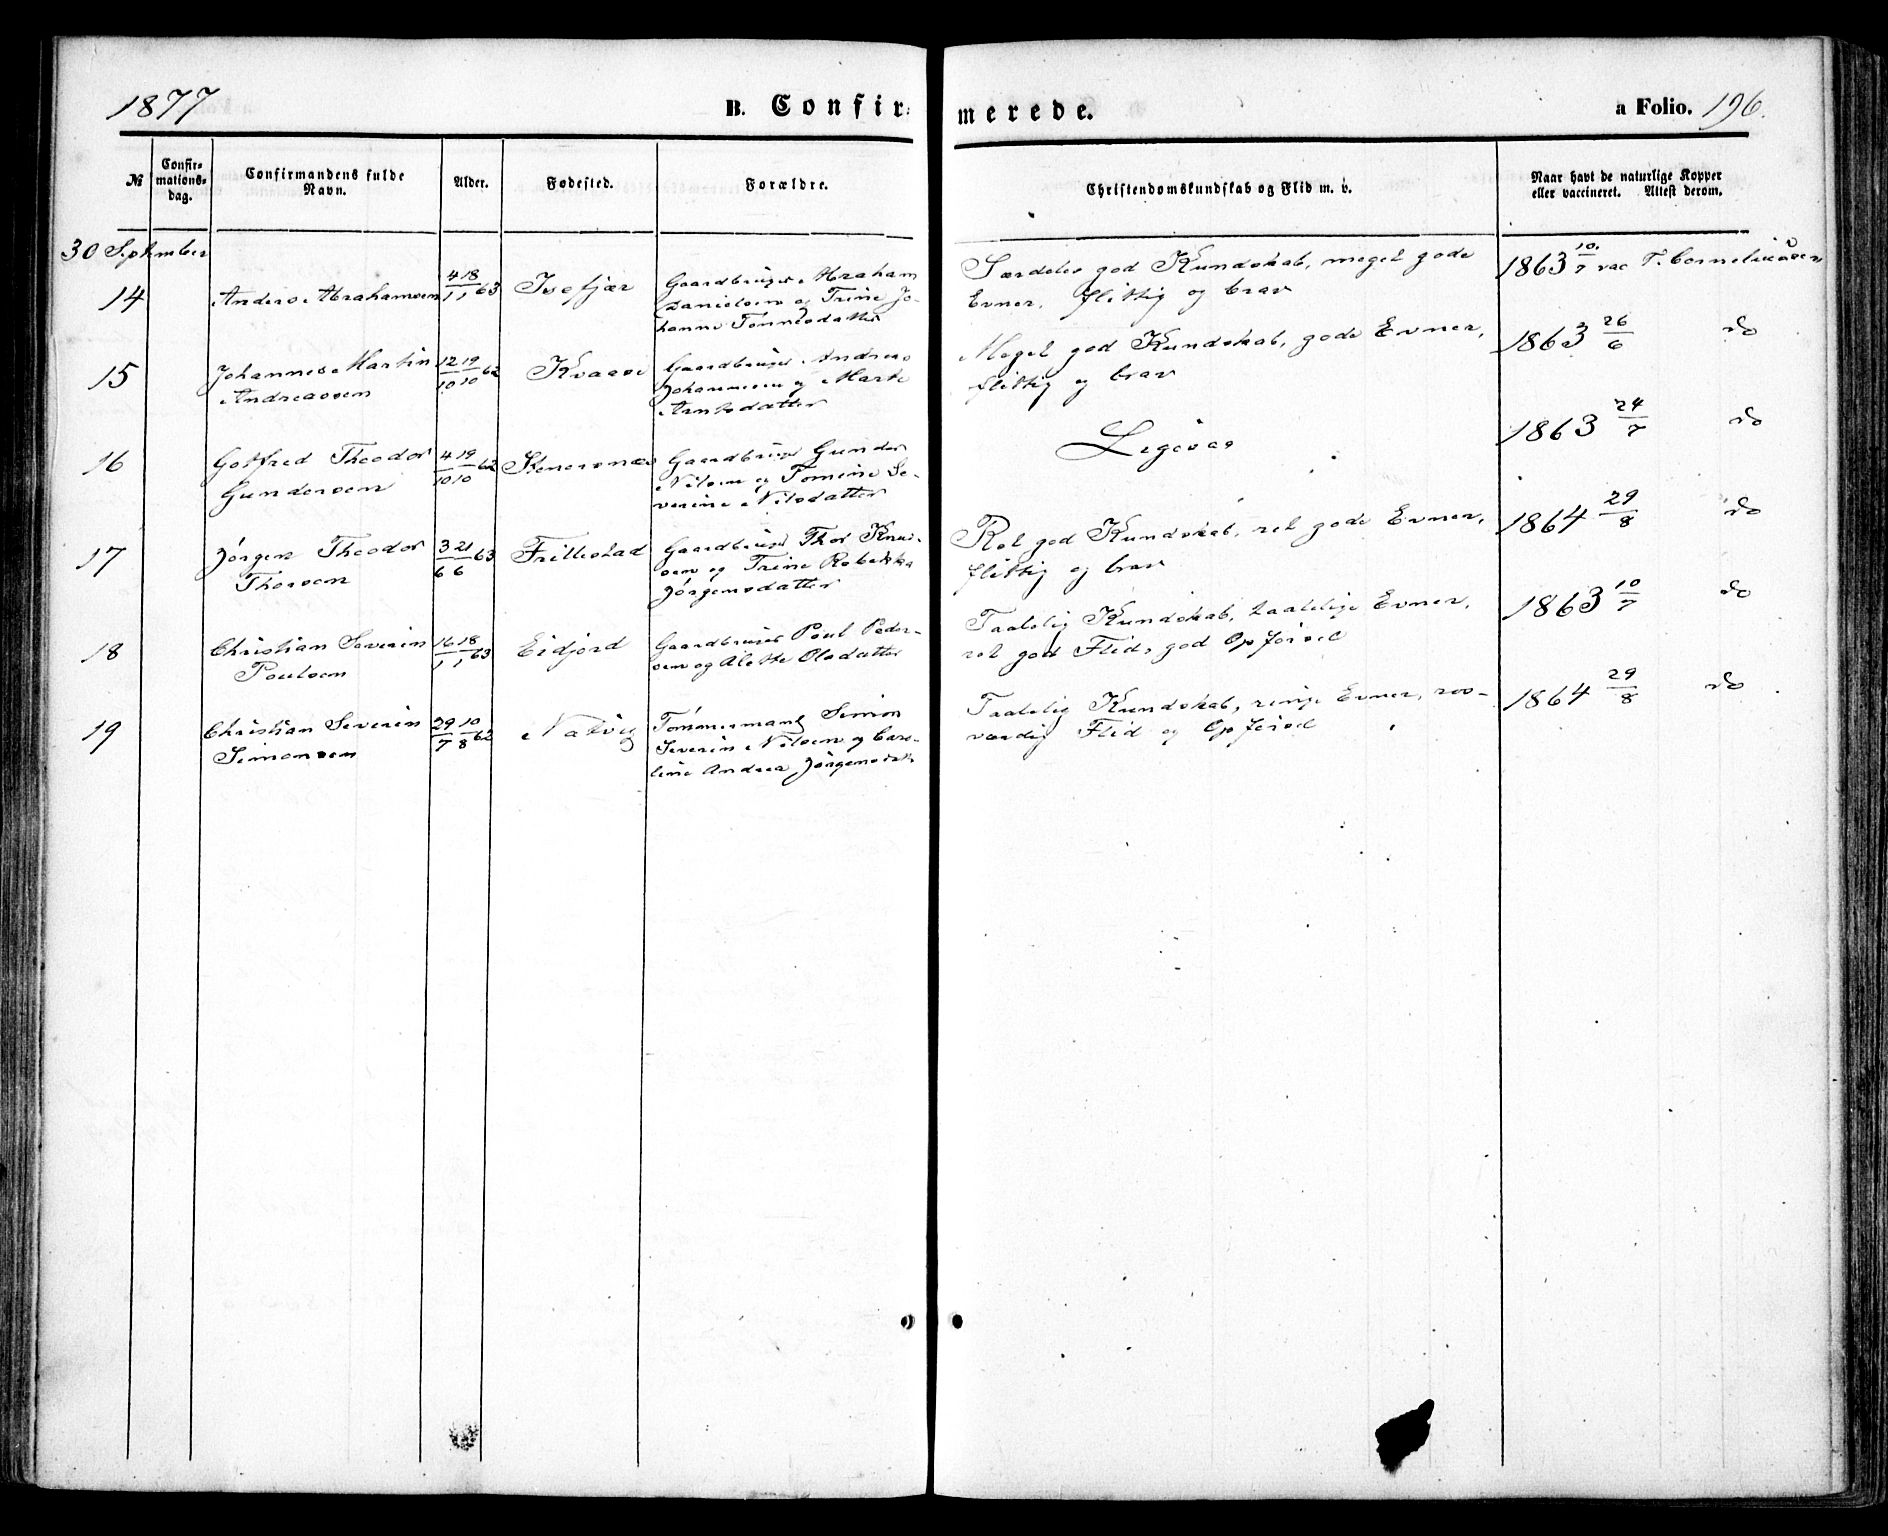 1877
B. Confir-
merede.
a Folio. 196.
№
Confir-
mations-
dag.
Confirmandens fulde
Navn.
Alder.
Fødested.
Forældre.
Christendomskundskab og Flid m. v.
Naar havt de naturlige Kopper
eller vaccineret. Attest derom.
30 September
14 Anders Abrahamsen 4/1 18/1 63 Isefjær Gaardbruger Abraham
Danielsen og Trine Jo-
hanne Tønnesdatter
Særdeles god Kundskab, meget gode
Evner, flittig og brav
1863 10/7 vac T. Corneliussen
15 Johannes Martin
Andreassen
12/10 19/10 62 Kvaase Gaardbruger Andreas
Johannesen og Marte
Arntsdatter
Meget god Kundskab, gode Evner,
flittig og brav
1863 26/6 do
16 Gotfred Theodor
Gundersen
4/10 19/10 62 Stenersnæs Gaardbruger Gunder
Nilsen og Tomine Se-
verine Nilsdatter
Ligesaa
1863 24/7 do
17 Jørgen Theodor
Thorsen
3/6 21/6 63 Frillestad Gaardbruger Thor Knud-
sen og Trine Rebekka
Jørgensdatter
Ret god Kundskab, ret gode Evner,
flittig og brav
1864 29/8 do
18 Christian Severin
Poulsen
16/1 18/1 63 Eidjord Gaardbruger Poul Peder-
sen og Alette Olsdatter
Taalelig Kundskab, taalelige Evner,
ret god Flid, god Opførsel
1863 10/7 do
19 Christian Severin
Simonsen
29/7 10/8 62 Natvig Tømmermand Simon
Severin Nilsen og Caro-
line Andrea Jørgensdatter
Taalelig Kundskab, ringe Evner, ros-
værdig Flid og Opførsel
1864 29/8 do